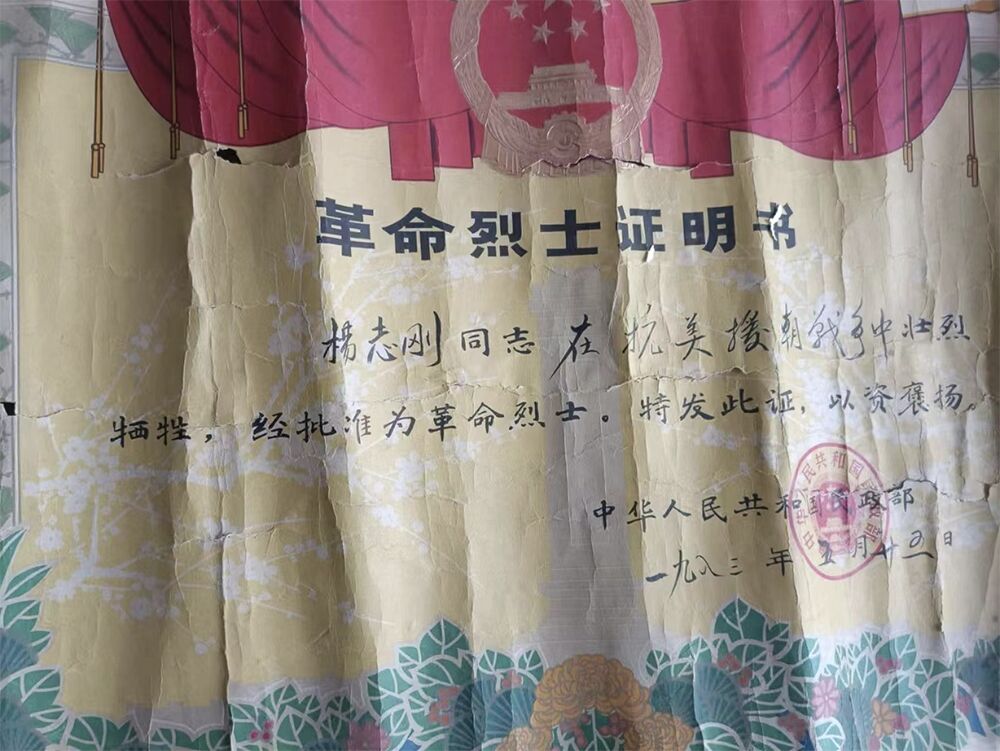 革命烈士证明书
杨志刚同志在抗美援朝战争中壮烈
牺牲，经批准为革命烈士。特发此证，以资褒扬。
中华人民共和国民政部
一九八三年五月十五日